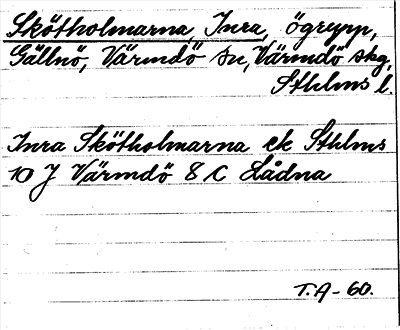 Skötholmarna, Inra, ögrupp,
Gällnö, Värmdö sn, Värmdö skg,
Sthlms l.
Inra Skötholmarna ek Sthlms
10 J Värmdö 8 C Lådna
T.A-60.